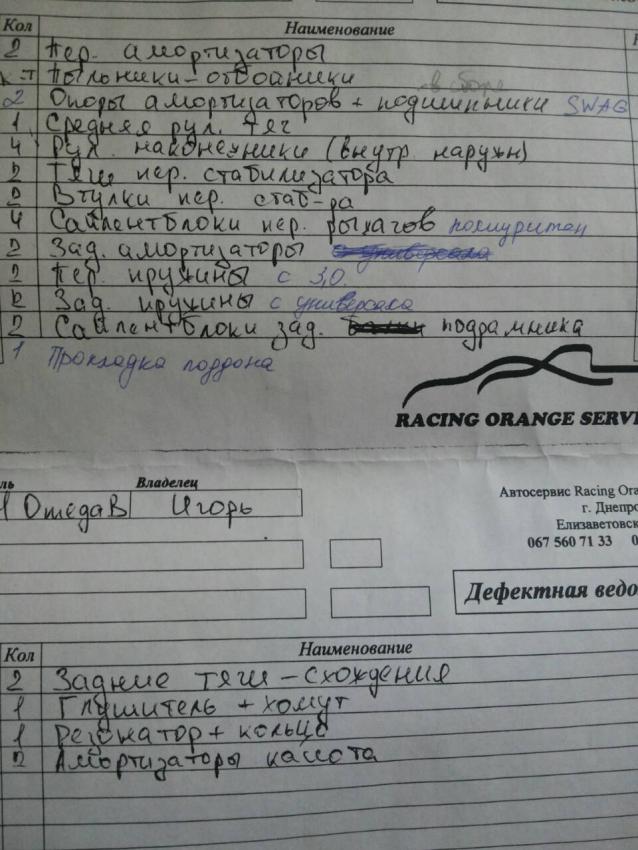 Кол Наименование
2 Пер. амортизаторы
к-т Пыльники-отбойники
в сборе
2 Опоры амортизаторов + подшипники SWAG
1 Средняя рул. тяг
4 Рул. наконечники (внутр. наружн)
2 Тяги пер. стабилизатора
2 Втулки пер. стаб-ра
4 Сайлентблоки пер. рычагов полиуритан
2 Зад. амортизаторы
2 Пер. пружины с 3,0.
2 Зад. пружины с универсала
2 Сайлентблоки зад. подрамника
1 Прокладка поддона
RACING ORANGE SERVI
ль Владелец
ОмегаВ Игорь
Автосервис Racing Ora
г. Днепро
Елизаветовск
067 560 71 33 0
Дефектная ведо
Кол Наименование
2 Задние тяги - схождения
1 Глушитель + хомут
1 Резонатор + кольцо
2 Амортизаторы капота